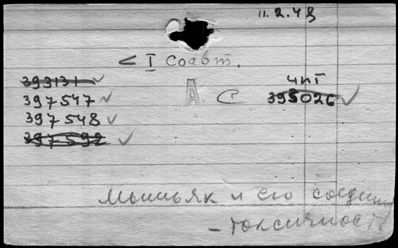 11.2.48
< I соавт.
393131
397547
397548
397592
А С
чит
395026
Мышьяк и его соедин
- токсичность